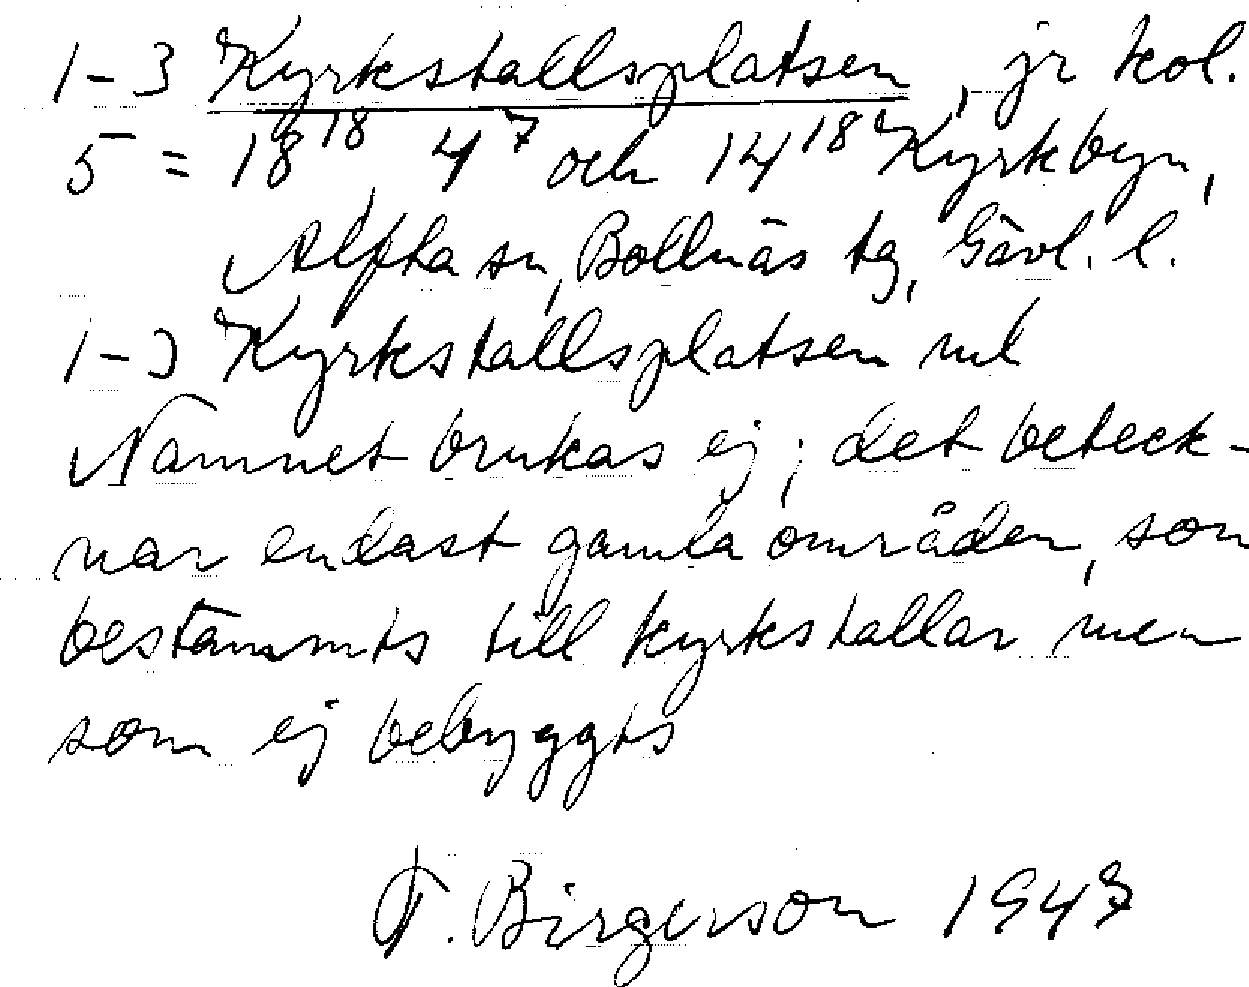 1-3 Kyrkstallsplatsen, jr kol.
5 = 18¹⁸ 4⁷ och 14¹⁸ Kyrkbyn,
Alfta sn, Bollnäs tg, Gävl. l.
1-3 Kyrkstallsplatsen
Namnet brukas ej; det beteck-
nar endast gamla områden, som
bestämts till kyrkstallar men
som ej bebyggts
F. Birgerson 1947